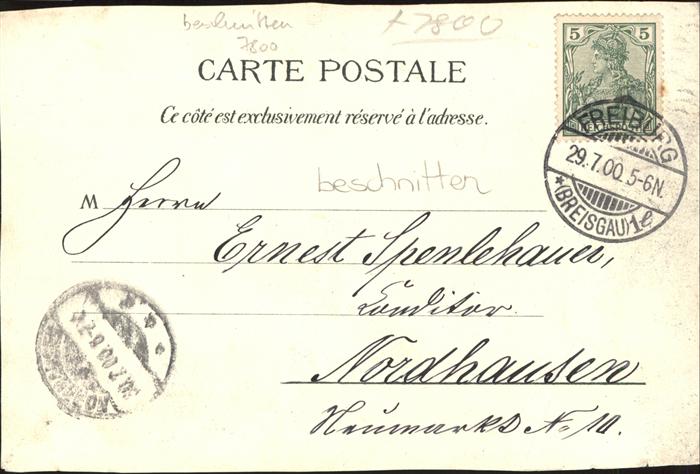 beschnitten
7800
+7800
CARTE POSTALE
Ce côté est exclusivement réservé à l'adresse.
5
5
FREIBURG
29.7.00.5-6N.
*(BREISGAU)1e
beschnitten
M Herrn
Ernest Spenlehauer,
Conditor
Nordhausen
Neumarkt No 10.